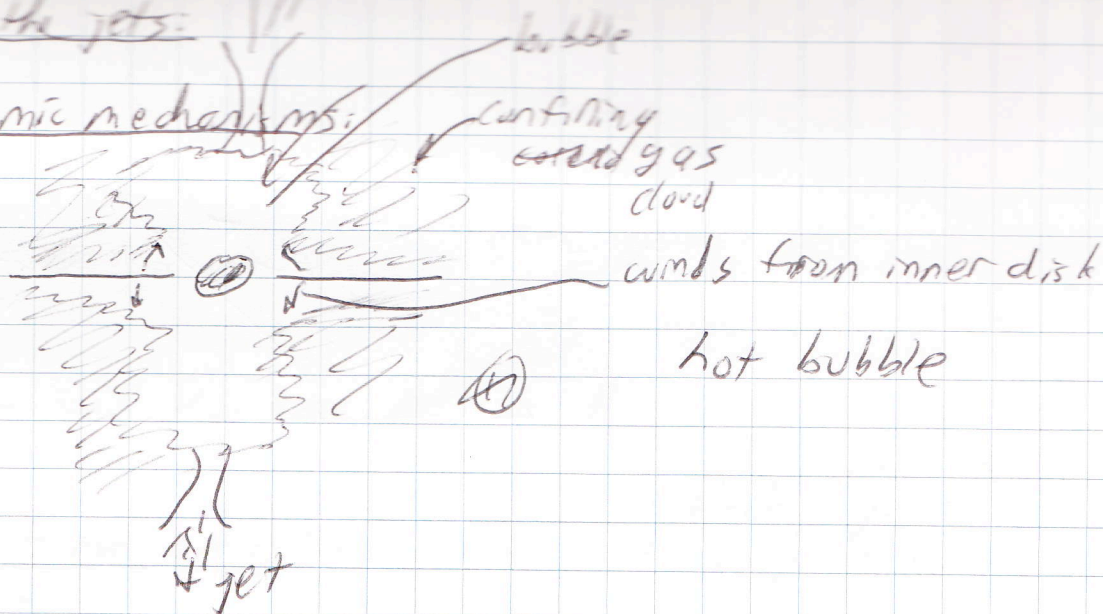 the jets:
bubble
mic mechanisms:
confining
gas
cloud
winds from inner disk
hot bubble
jet